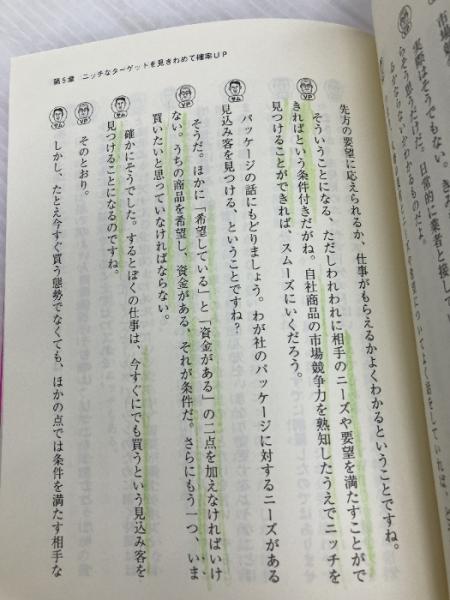 実際はそうでもない。きみ
らそう思うだけだ。日常的に業者と接して
先方の要望に応えられるか、仕事がもらえるかよくわかるということですね。
VP
そういうことになる、ただしわれわれに相手のニーズや要望を満たすことがで
きればという条件付きだがね。自社商品の市場競争力を熟知したうえでニッチを
見つけることができれば、スムーズにいくだろう。
サム
パッケージの話にもどりましょう。わが社のパッケージに対するニーズがある
見込み客を見つける、ということですね?
VP
そうだ。ほかに「希望している」と「資金がある」の二点を加えなければいけ
ない。うちの商品を希望し、資金がある、それが条件だ。さらにもう一つ、いま
買いたいと思っていなければならない。
サム
確かにそうでした。するとぼくの仕事は、今すぐにでも買うという見込み客を
見つけることになるのですね。
VP
そのとおり。
サム
しかし、たとえ今すぐ買う態勢でなくても、ほかの点では条件を満たす相手な
第5章 ニッチなターゲットを見きわめて確率UP